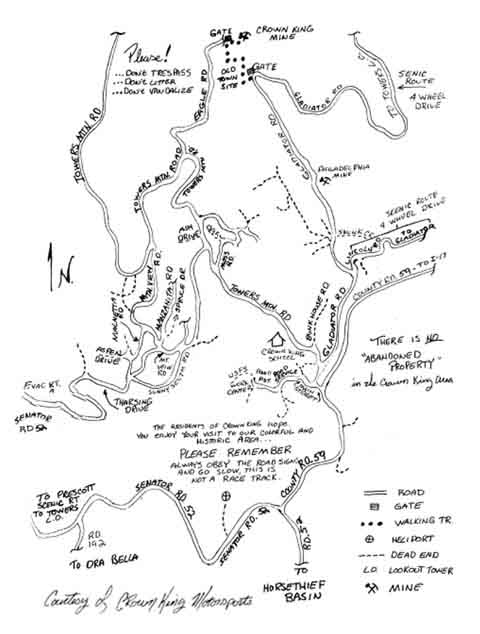 GATE
CROWN KING
MINE
Please!
... DON'T TRESPASS
... DON'T LITTER
... DON'T VANDALIZE
OLD
TOWN
SITE
GATE
EAGLE RD
GLADIATOR RD
TO TOWERS L.O.
SENIC
ROUTE
4 WHEEL
DRIVE
TOWERS MTN RD
TOWERS MTN ROAD
TOWERS MTN
GLADIATOR RD
PHILADELPHIA
MINE
SCENIC ROUTE
4 WHEEL DRIVE
LINCOLN
TO
GLADIATOR
COUNTY RD. 59 - TO I-17
ASH
DRIVE
N.
MTN VIEW RD.
MANZANITA RD
SPRUCE DR
TOWERS MTN RD
BUNKHOUSE RD
GLADIATOR RD
ASPEN
DRIVE
MT.
VIEW
RD
SUNNY SOUTH RD
CROWN KING
SCHOOL
THERE IS NO
"ABANDONED
PROPERTY"
in the Crown King Area
EVAC RT.
A
THARSING
DRIVE
SENATOR
RD 52
USFS
THE RESIDENTS OF CROWN KING HOPE
YOU ENJOY YOUR VISIT TO OUR COLORFUL AND
HISTORIC AREA...
PLEASE REMEMBER
ALWAYS OBEY THE ROAD SIGNS
AND GO SLOW, THIS IS
NOT A RACE TRACK.
COUNTY RD. 59
TO PRESCOTT
SCENIC RT
TO TOWERS
L.O.
SENATOR RD 52
SENATOR RD. 52
RD.
192
TO ORA BELLA
RD. 52
TO
HORSETHIEF
BASIN
ROAD
GATE
WALKING TR.
HELIPORT
DEAD END
L.O. LOOKOUT TOWER
MINE
Courtesy of Crown King Motorsports